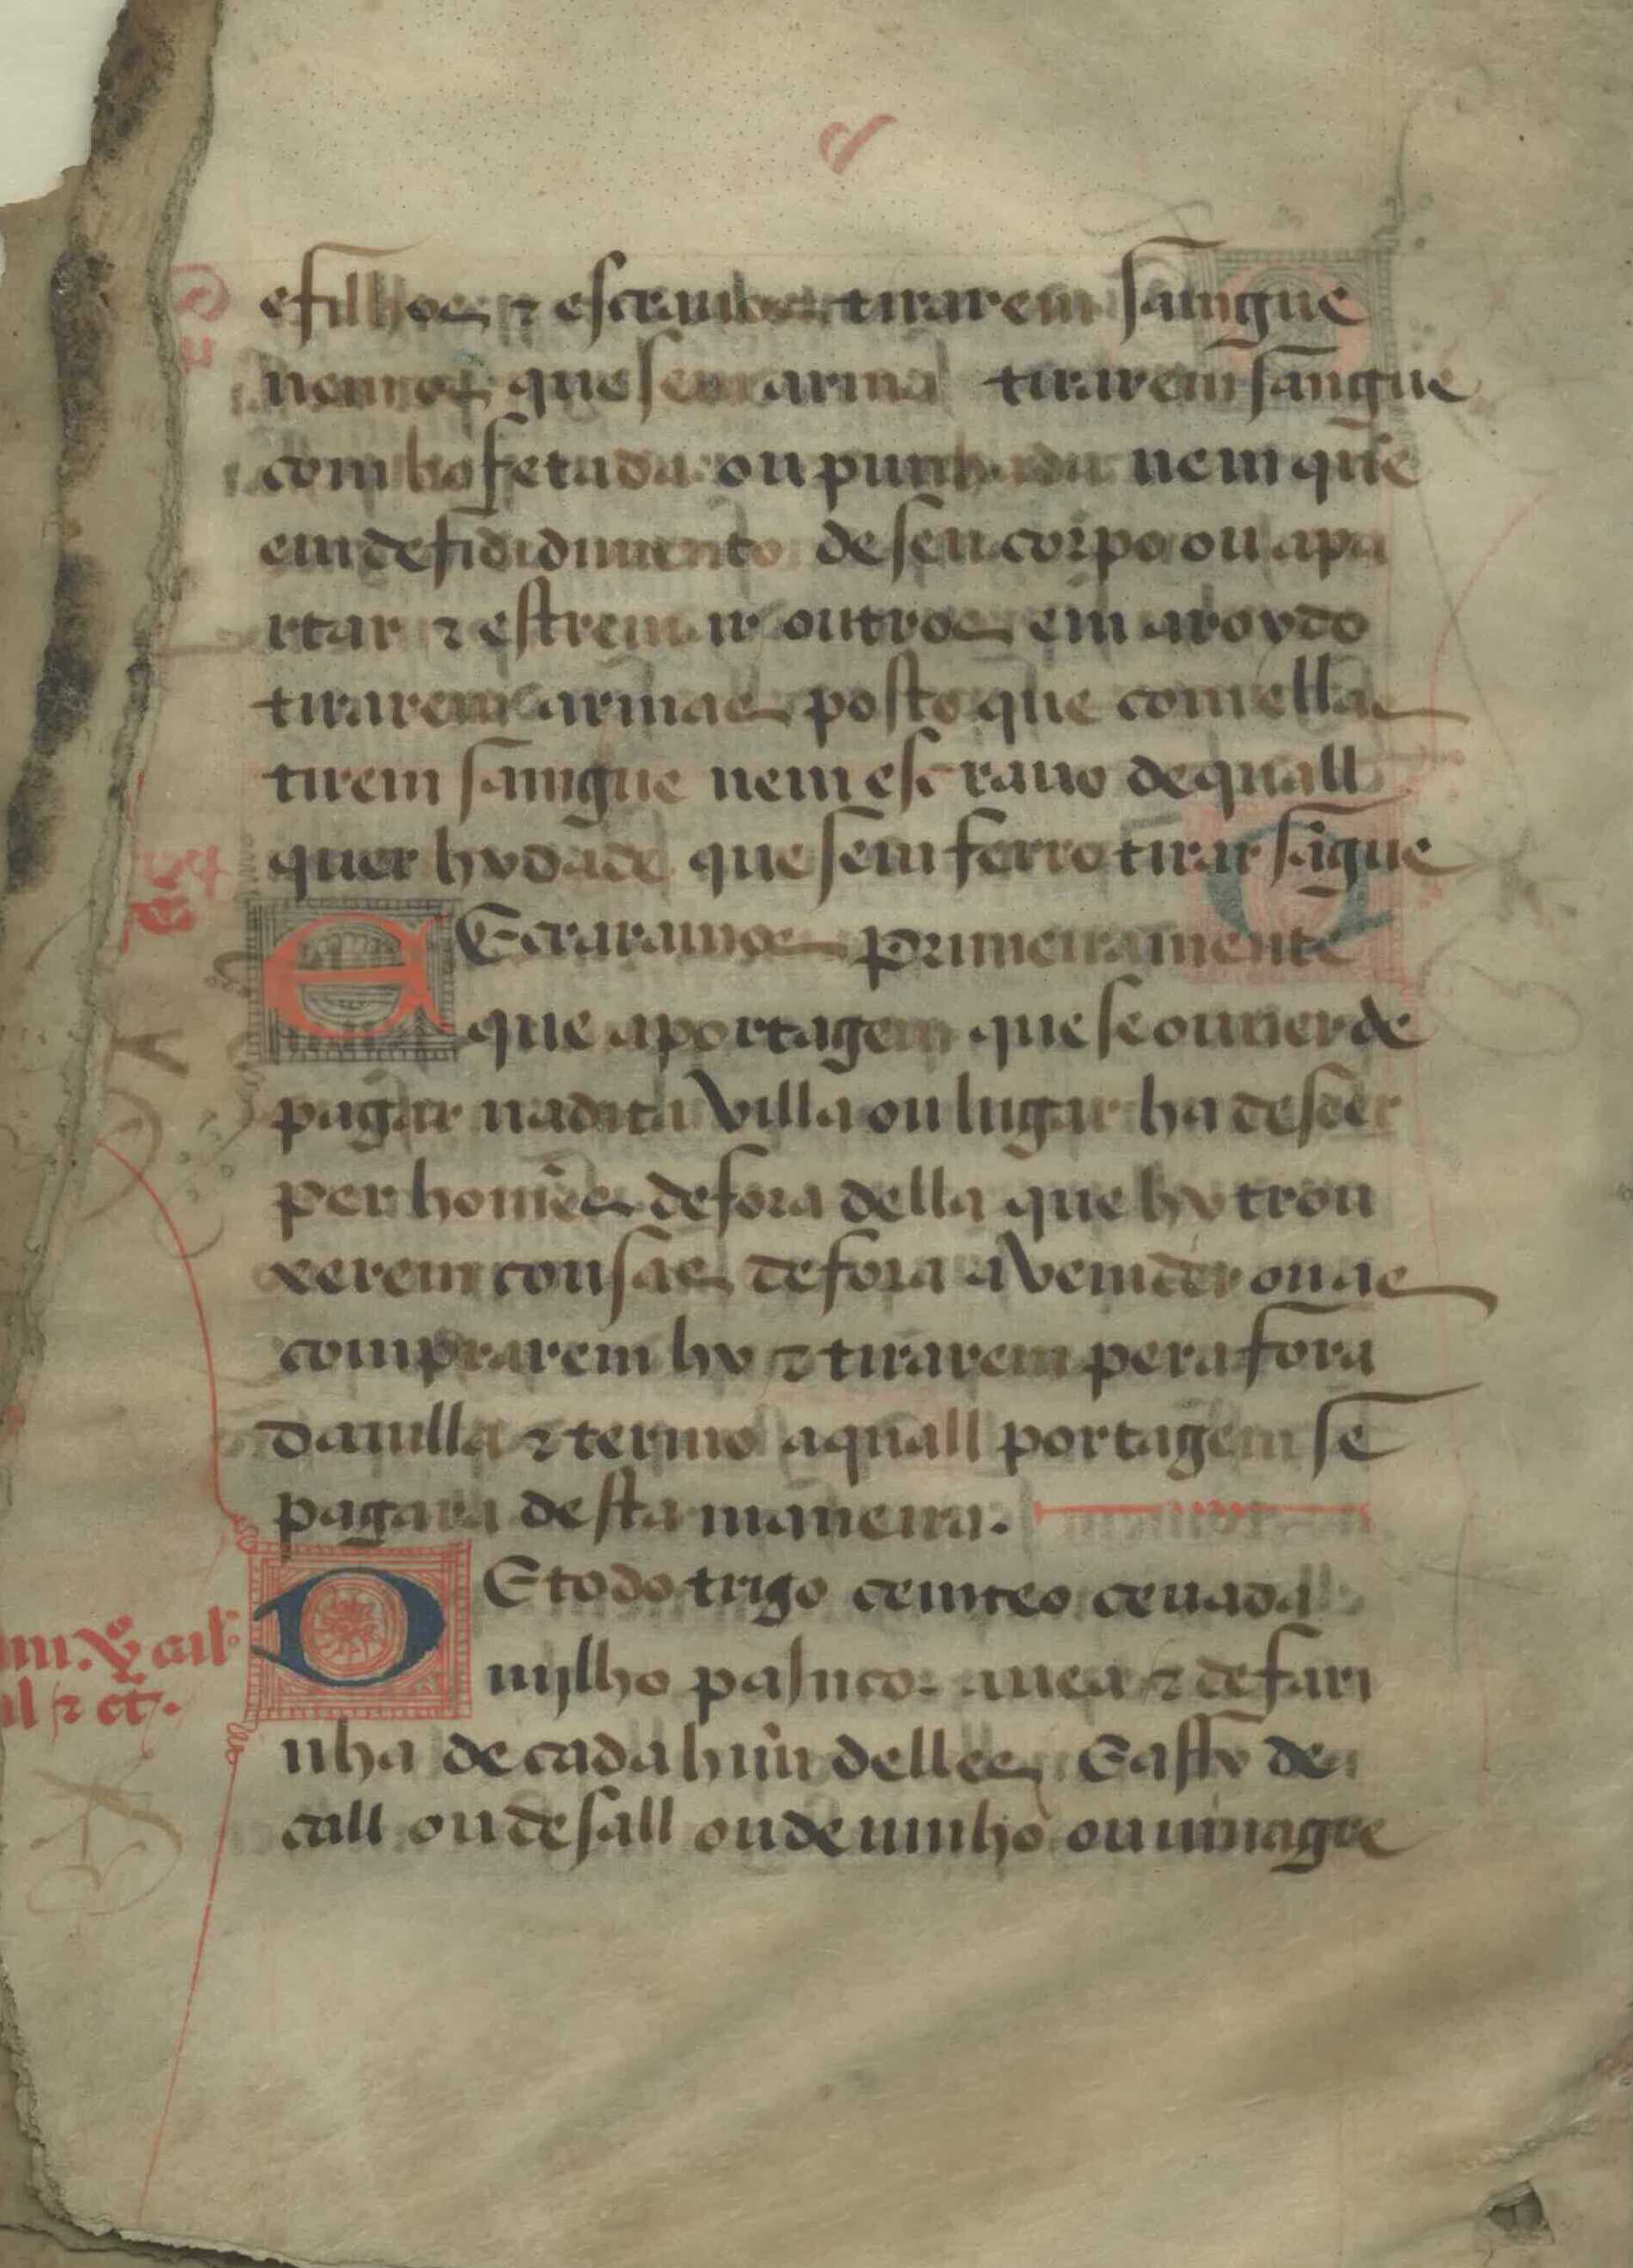 e filhos ⁊ escrauos tirarem samgue
nem os que sem arma tirarem sangue
com bofetada ou punhada nem que
em defididimento de seu corpo ou apa
rtar ⁊ estremar outros em aroydo
tirarem armas posto que com ellas
tirem samgue nem escrauo de quall
quer hydade que sem ferro tirar sãgue
E Ecraramos Primeiramente
que a portagem que se ouuer de
pagar na dita Villa ou lugar ha de seer
per homẽes de fora della que hy trou
xerem cousas de fora a Vemder ou as
comprarem hy ⁊ tirarem pera fora
da uilla ⁊ termo a quall portagem se
pagara desta maneira.
D E todo trigo cemteo ceuada
mjlho painço auea ⁊ de fari
nha de cada huũ delles E assy de
call ou de sall ou de uinho ou uinagre